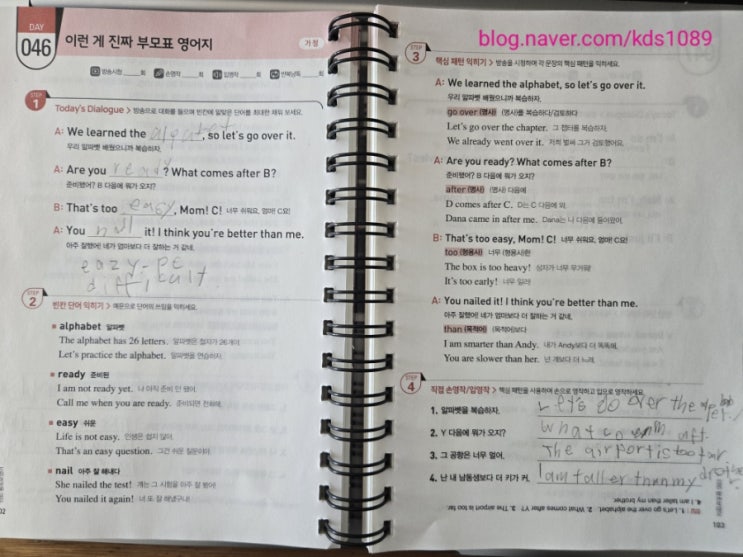 DAY
046
이런 게 진짜 부모표 영어지
가정
방송시청 ___회 손영작 ___회 입영작 ___회 반복낭독 ___회
STEP 1
Today's Dialogue > 방송으로 대화를 들으며 빈칸에 알맞은 단어를 최대한 채워 보세요.
A: We learned the alpabet, so let's go over it.
우리 알파벳 배웠으니까 복습하자.
A: Are you ready? What comes after B?
준비됐어? B 다음에 뭐가 오지?
B: That's too easy, Mom! C! 너무 쉬워요, 엄마! C요!
A: You nail it! I think you're better than me.
아주 잘했어! 네가 엄마보다 더 잘하는 거 같네.
eazy-pe
difficult.
STEP 2
빈칸 단어 익히기 > 예문으로 단어의 쓰임을 익히세요.
alphabet 알파벳
The alphabet has 26 letters. 알파벳은 철자가 26개야.
Let's practice the alphabet. 알파벳을 연습하자.
ready 준비된
I am not ready yet. 나 아직 준비 안 됐어.
Call me when you are ready. 준비되면 전화해.
easy 쉬운
Life is not easy. 인생은 쉽지 않아.
That's an easy question. 그건 쉬운 질문이야.
nail 아주 잘 해내다
She nailed the test! 걔는 그 시험을 아주 잘 봤어!
You nailed it again! 너 또 잘 해냈구나!
blog.naver.com/kds1089
STEP 3
핵심 패턴 익히기 > 방송을 시청하며 각 문장의 핵심 패턴을 익히세요.
A: We learned the alphabet, so let's go over it.
우리 알파벳 배웠으니까 복습하자.
go over (명사) (명사)를 복습하다/검토하다
Let's go over the chapter. 그 챕터를 복습하자.
We already went over it. 저희 벌써 그거 검토했어요.
A: Are you ready? What comes after B?
준비됐어? B 다음에 뭐가 오지?
after (명사) (명사) 다음에
D comes after C. D는 C 다음에 와.
Dana came in after me. Dana는 나 다음에 들어왔어.
B: That's too easy, Mom! C! 너무 쉬워요, 엄마! C요!
too (형용사) 너무 (형용사)한
The box is too heavy! 상자가 너무 무거워!
It's too early! 너무 일러!
A: You nailed it! I think you're better than me.
아주 잘했어! 네가 엄마보다 더 잘하는 거 같네.
than (목적어) (목적어)보다
I am smarter than Andy. 내가 Andy보다 더 똑똑해.
You are slower than her. 넌 걔보다 더 느려.
STEP 4
직접 손영작/입영작 > 핵심 패턴을 사용하여 손으로 영작하고 입으로 영작하세요.
1. 알파벳을 복습하자. Let's go over the
2. Y 다음에 뭐가 오지? What co aft.
3. 그 공항은 너무 멀어. The airport is too far.
4. 난 내 남동생보다 더 키가 커. I am taller than my
정답 1. Let's go over the alphabet. 2. What comes after Y? 3. The airport is too far.
4. I am taller than my brother.
103